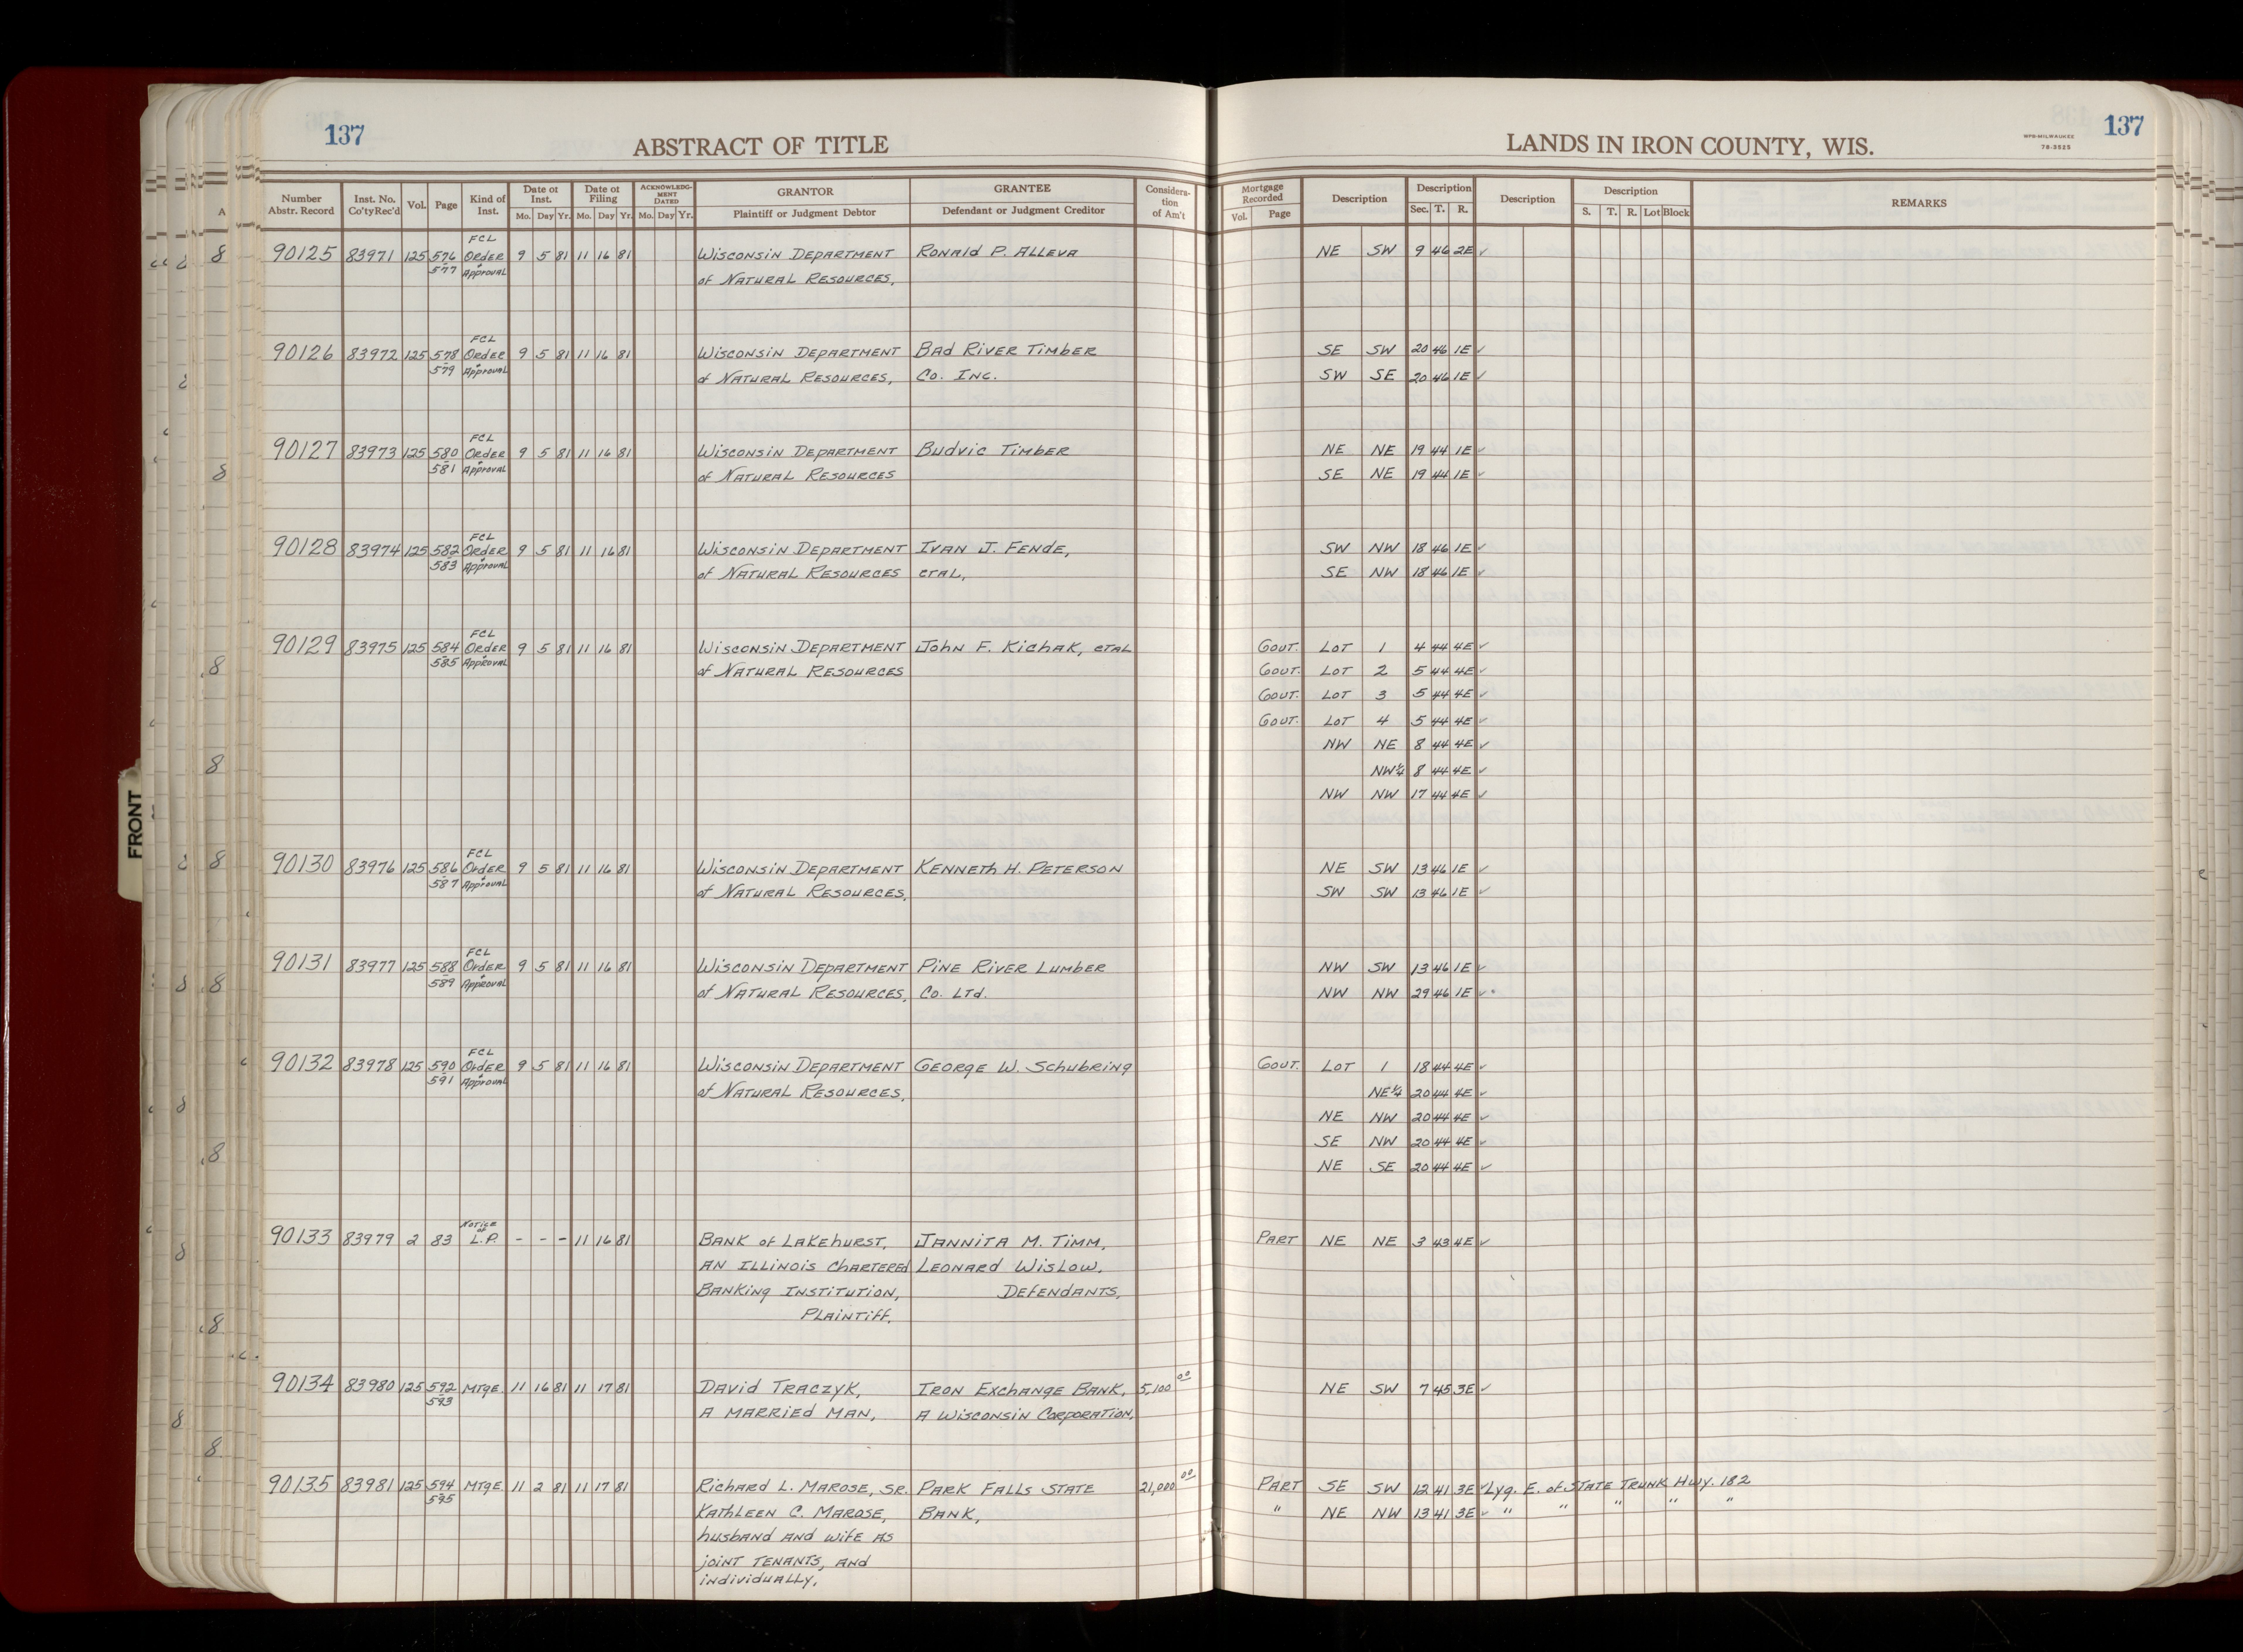 137 ABSTRACT OF TITLE LANDS IN IRON COUNTY, WIS. WPB-MILWAUKEE 78-3525 137
Number Abstr. Record Inst. No. Co'ty Rec'd Vol. Page Kind of Inst. Date of Inst. Mo. Day Yr. Date of Filing Mo. Day Yr. ACKNOWLEDGMENT DATED Mo. Day Yr. GRANTOR Plaintiff or Judgment Debtor GRANTEE Defendant or Judgment Creditor Consideration of Am't Mortgage Recorded Vol. Page Description Description Sec. T. R. Description Description S. T. R. Lot Block REMARKS
FCL
90125 83971 125 576 Order 9 5 81 11 16 81 Wisconsin Department Ronald P. Alleva NE SW 9 46 2E ✓
577 & Approval of Natural Resources,
FCL
90126 83972 125 578 Order 9 5 81 11 16 81 Wisconsin Department Bad River Timber SE SW 20 46 1E ✓
579 & Approval of Natural Resources, Co. Inc. SW SE 20 46 1E ✓
FCL
90127 83973 125 580 Order 9 5 81 11 16 81 Wisconsin Department Budvic Timber NE NE 19 44 1E ✓
581 & Approval of Natural Resources SE NE 19 44 1E ✓
FCL
90128 83974 125 582 Order 9 5 81 11 16 81 Wisconsin Department Ivan J. Fende, SW NW 18 46 1E ✓
583 & Approval of Natural Resources etal, SE NW 18 46 1E ✓
FCL
90129 83975 125 584 Order 9 5 81 11 16 81 Wisconsin Department John F. Kichak, etal Gout. Lot 1 4 44 4E ✓
585 & Approval of Natural Resources Gout. Lot 2 5 44 4E ✓
Gout. Lot 3 5 44 4E ✓
Gout. Lot 4 5 44 4E ✓
NW NE 8 44 4E ✓
NW¼ 8 44 4E ✓
NW NW 17 44 4E ✓
FCL
90130 83976 125 586 Order 9 5 81 11 16 81 Wisconsin Department Kenneth H. Peterson NE SW 13 46 1E ✓
587 & Approval of Natural Resources, SW SW 13 46 1E ✓
FCL
90131 83977 125 588 Order 9 5 81 11 16 81 Wisconsin Department Pine River Lumber NW SW 13 46 1E ✓
589 & Approval of Natural Resources, Co. Ltd. NW NW 29 46 1E ✓
FCL
90132 83978 125 590 Order 9 5 81 11 16 81 Wisconsin Department George W. Schubring Gout. Lot 1 18 44 4E ✓
591 & Approval of Natural Resources, NE¼ 20 44 4E ✓
NE NW 20 44 4E ✓
SE NW 20 44 4E ✓
NE SE 20 44 4E ✓
Notice of
90133 83979 2 83 L.P. - - - 11 16 81 Bank of Lakehurst, Jannita M. Timm, Part NE NE 3 43 4E ✓
an Illinois Chartered Leonard Wislow,
Banking Institution, Defendants,
Plaintiff,
90134 83980 125 592 Mtge. 11 16 81 11 17 81 David Traczyk, Iron Exchange Bank, 5,100 00 NE SW 7 45 3E ✓
593 a married man, a Wisconsin Corporation,
90135 83981 125 594 Mtge. 11 2 81 11 17 81 Richard L. Marose, Sr. Park Falls State 21,000 00 Part SE SW 12 41 3E ✓ Lyg. E. of State Trunk Hwy. 182
595 Kathleen C. Marose, Bank, " NE NW 13 41 3E ✓ " " " " "
husband and wife as
joint tenants, and
individually,
FRONT